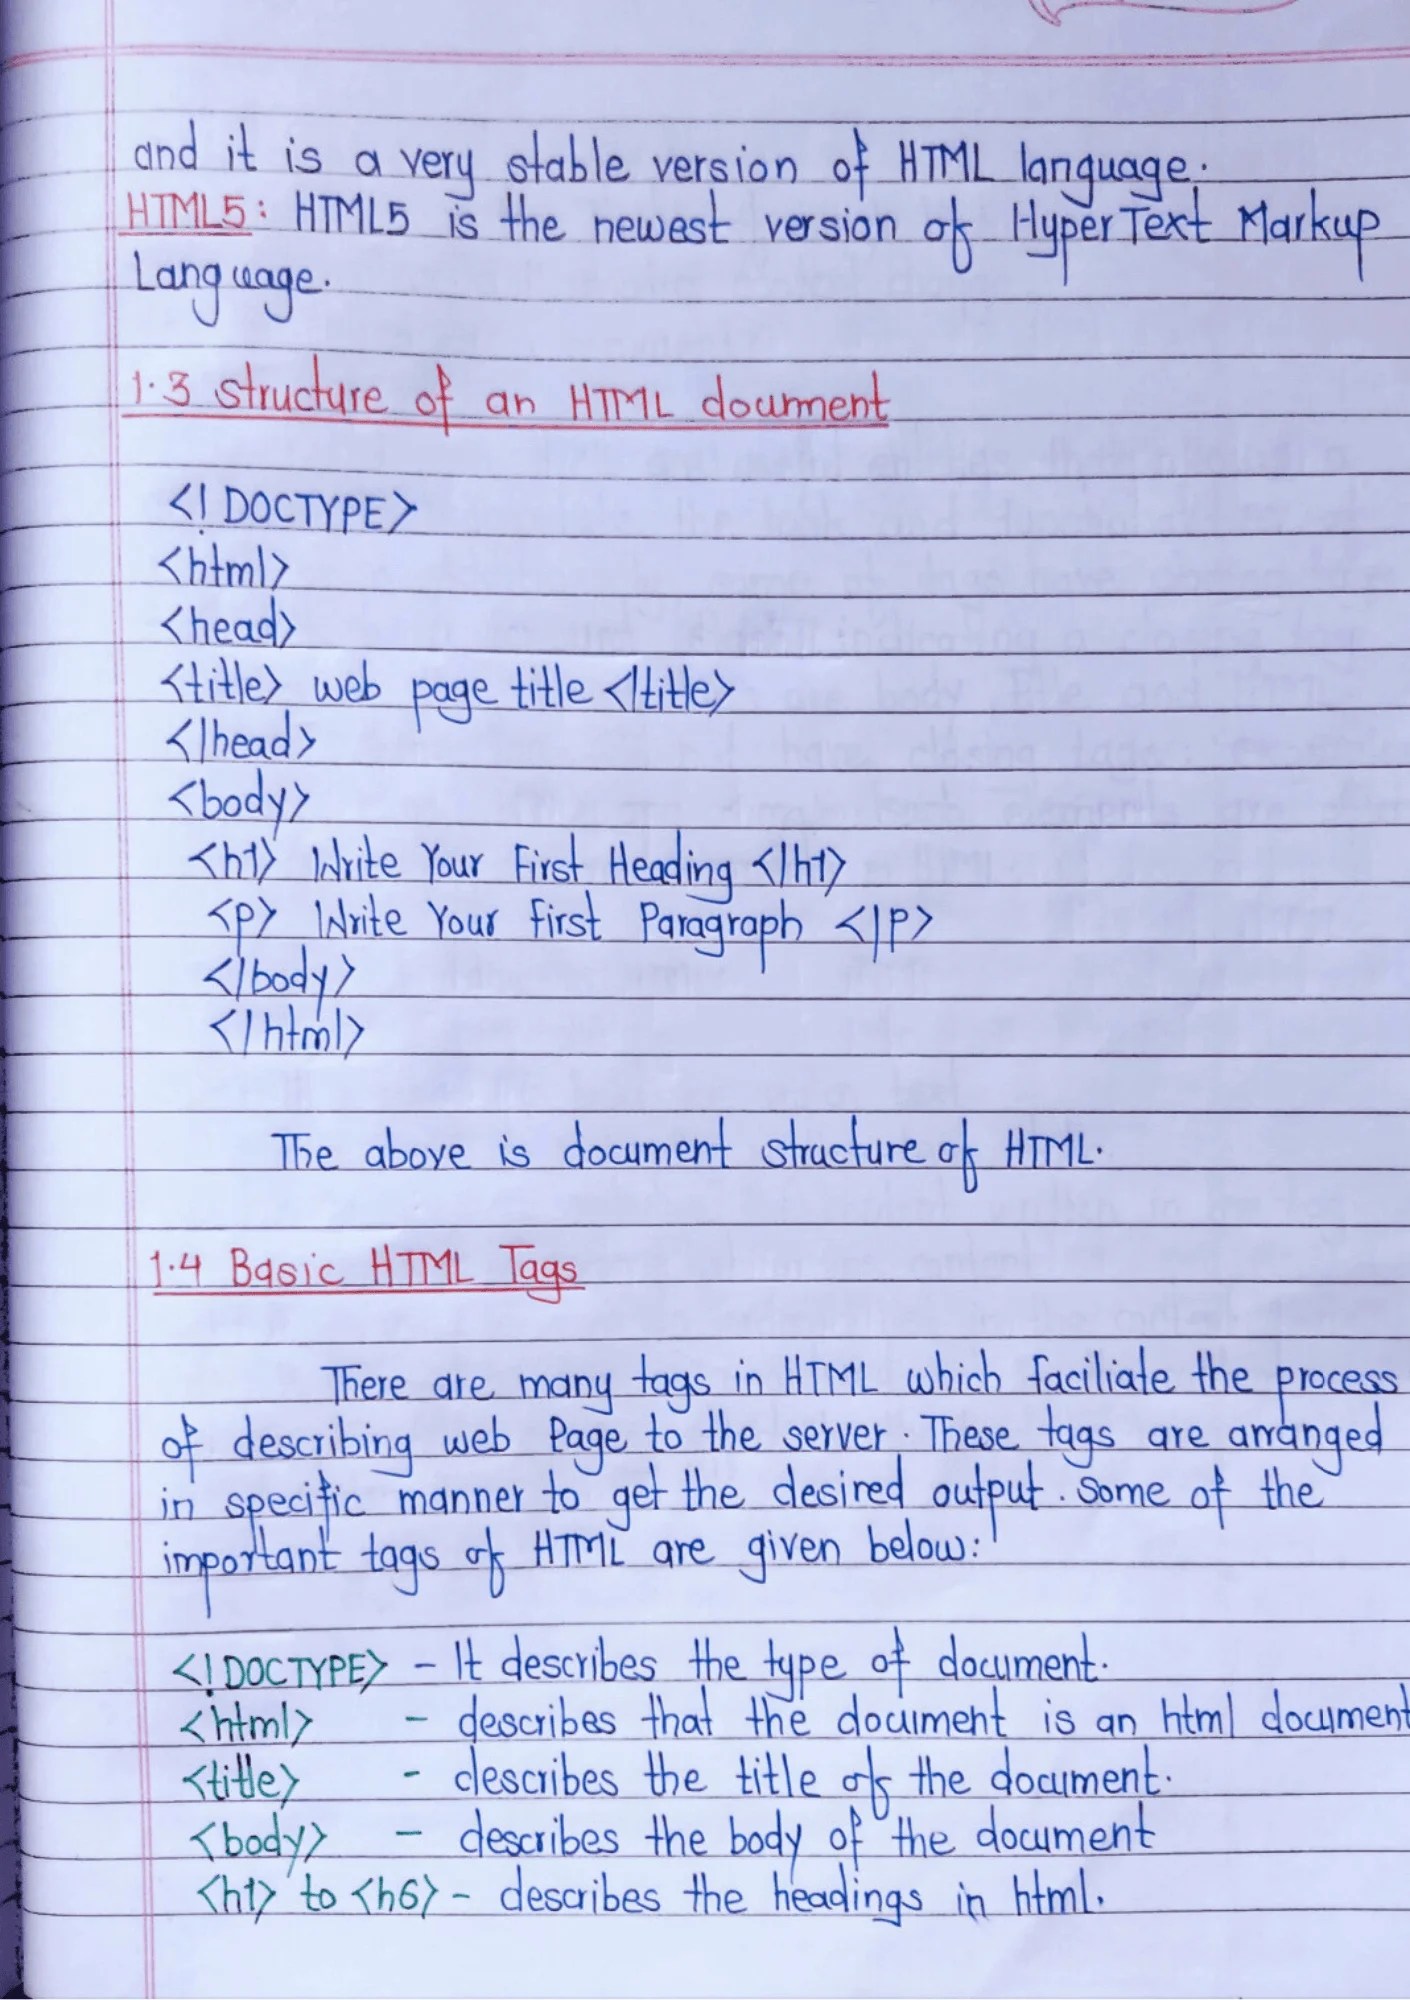 and it is a very stable version of HTML language.
HTML5: HTML5 is the newest version of HyperText Markup
Language.
1.3 structure of an HTML doument
<! DOCTYPE>
<html>
<head>
<title> web page title </title>
</head>
<body>
<h1> Write Your First Heading </h1>
<p> Write Your First Paragraph </p>
</body>
</html>
The above is document structure of HTML.
1.4 Basic HTML Tags
There are many tags in HTML which faciliate the process
of describing web Page to the server. These tags are arranged
in specific manner to get the desired output. Some of the
important tags of HTML are given below:
<!DOCTYPE> - It describes the type of document.
<html> - describes that the document is an html document
<title> - describes the title of the document.
<body> - describes the body of the document
<h1> to <h6> - describes the headings in html.